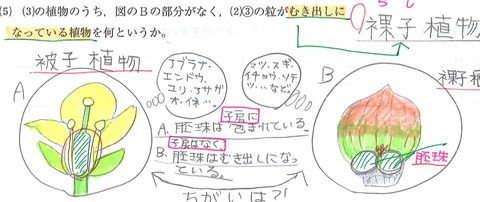 (5) (3)の植物のうち，図のBの部分がなく，(2)③の粒がむき出しに
なっている植物を何というか。
裸子植物
被子植物
アブラナ・
エンドウ、
ユリ、アサガ
オ、イネ…
マツ、スギ、
イチョウ、ソテ
ツ…など
裸子植
A
B
子房に
A. 胚珠は包まれている。
子房はなく、
B. 胚珠はむき出しになっ
ている。
胚珠
ちがいは?!